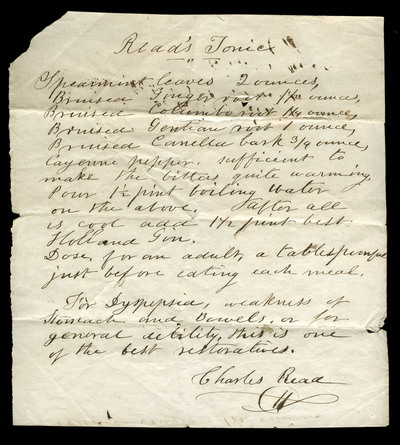 Read's Tonic
Spearmint leaves 2 ounces,
Bruised Ginger root 1½ ounces,
Bruised Collumbo root 1¼ ounces
Bruised Gentian root 1 ounce,
Bruised Canella bark 3/4 ounce,
Cayenne pepper. sufficient to
make the bitters quite warming
Pour 1½ pint boiling water
on the above. After all
is cool add 1½ pint best
Holland Gin.
Dose, for an adult, a tablespoonful
just before eating each meal.
For Dyspepsia, weakness of
Stomach and Bowels, or for
general debility, this is one
of the best restoratives.
Charles Read